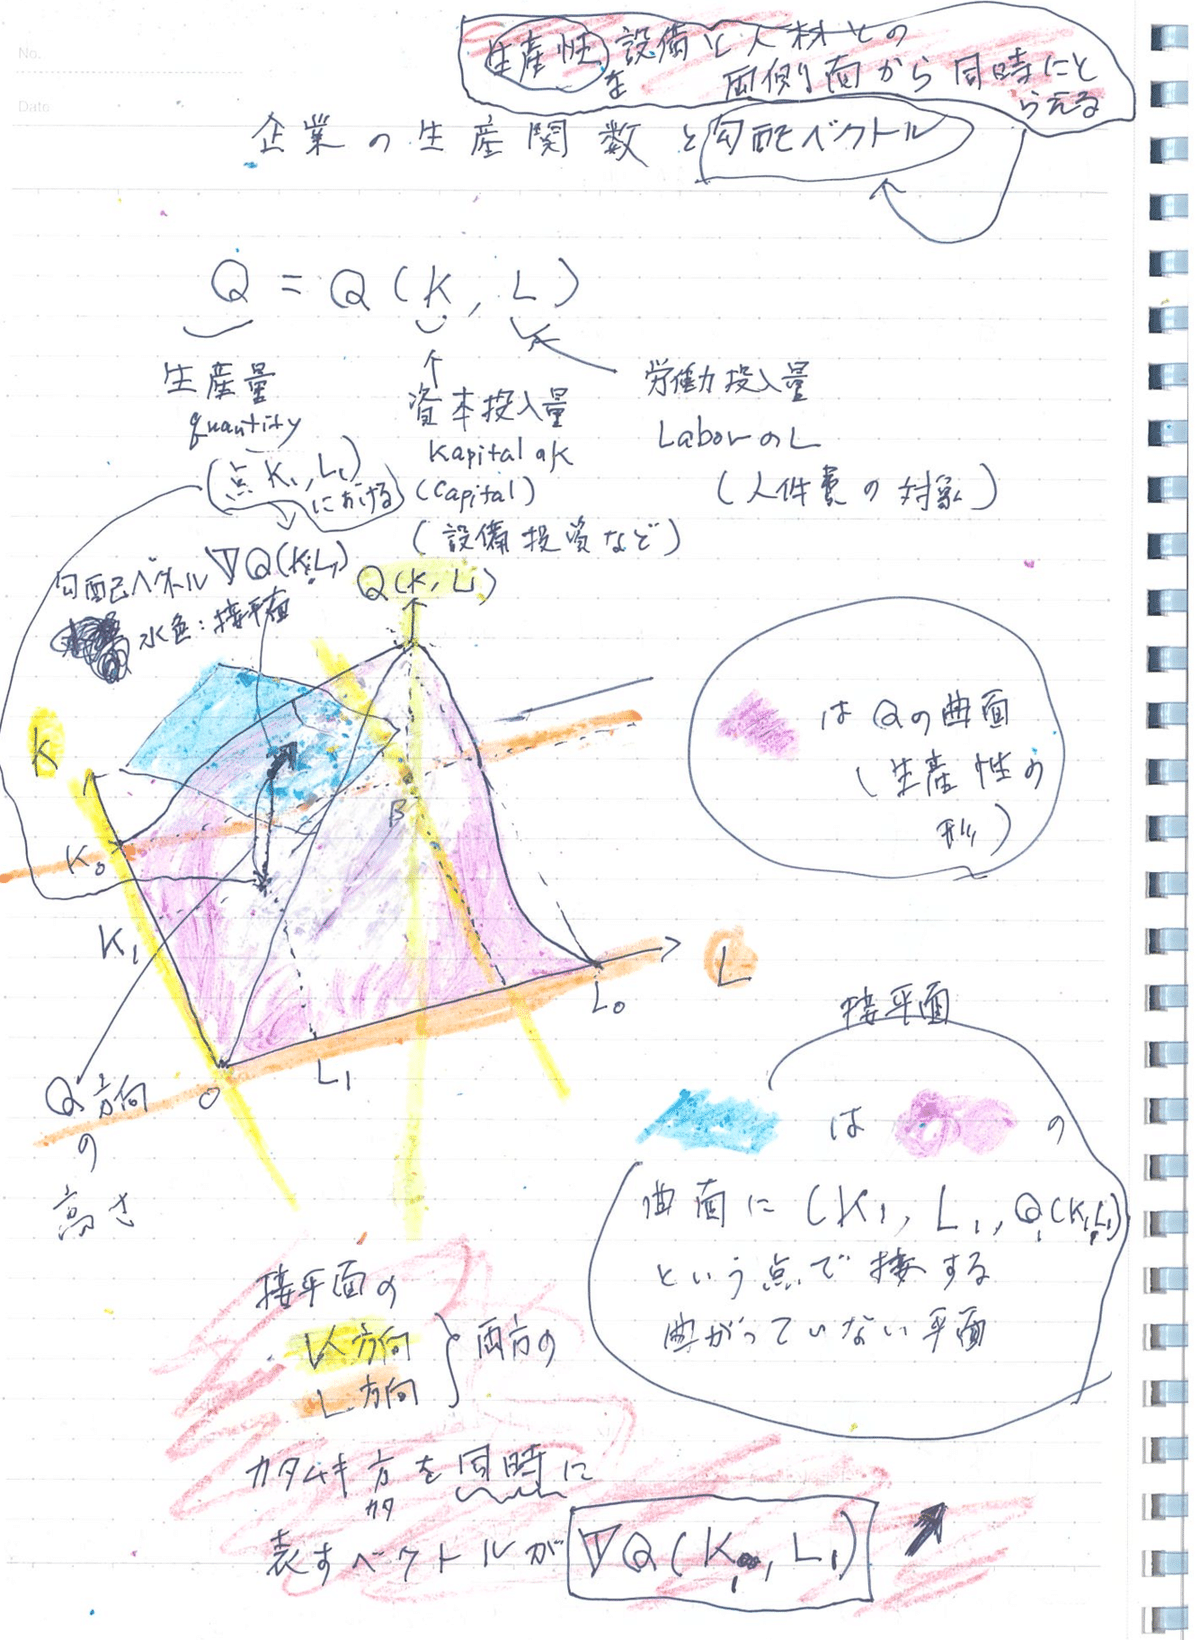 No.
Date
生産性を設備と人材との
両側面から同時にと
らえる
企業の生産関数と勾配ベクトル
Q = Q (K, L)
生産量
quantity
資本投入量
KapitalのK
(Capital)
(設備投資など)
労働力投入量
LaborのL
(人件費の対象)
(点 K₁, L₁)
における
勾配ベクトル ∇Q(K₁L₁)
水色:接平面
Q(K, L)
K
K₀
K₁
B
O
L₁
L₀
L
Q方向
の
高さ
はQの曲面
(生産性の
形)
接平面
は の
曲面に (K₁, L₁, Q(K₁L₁)
という点で接する
曲がっていない平面
接平面の
K方向
L方向
両方の
カタムキ方を同時に
カタ
表すベクトルが ∇Q(K₁, L₁)